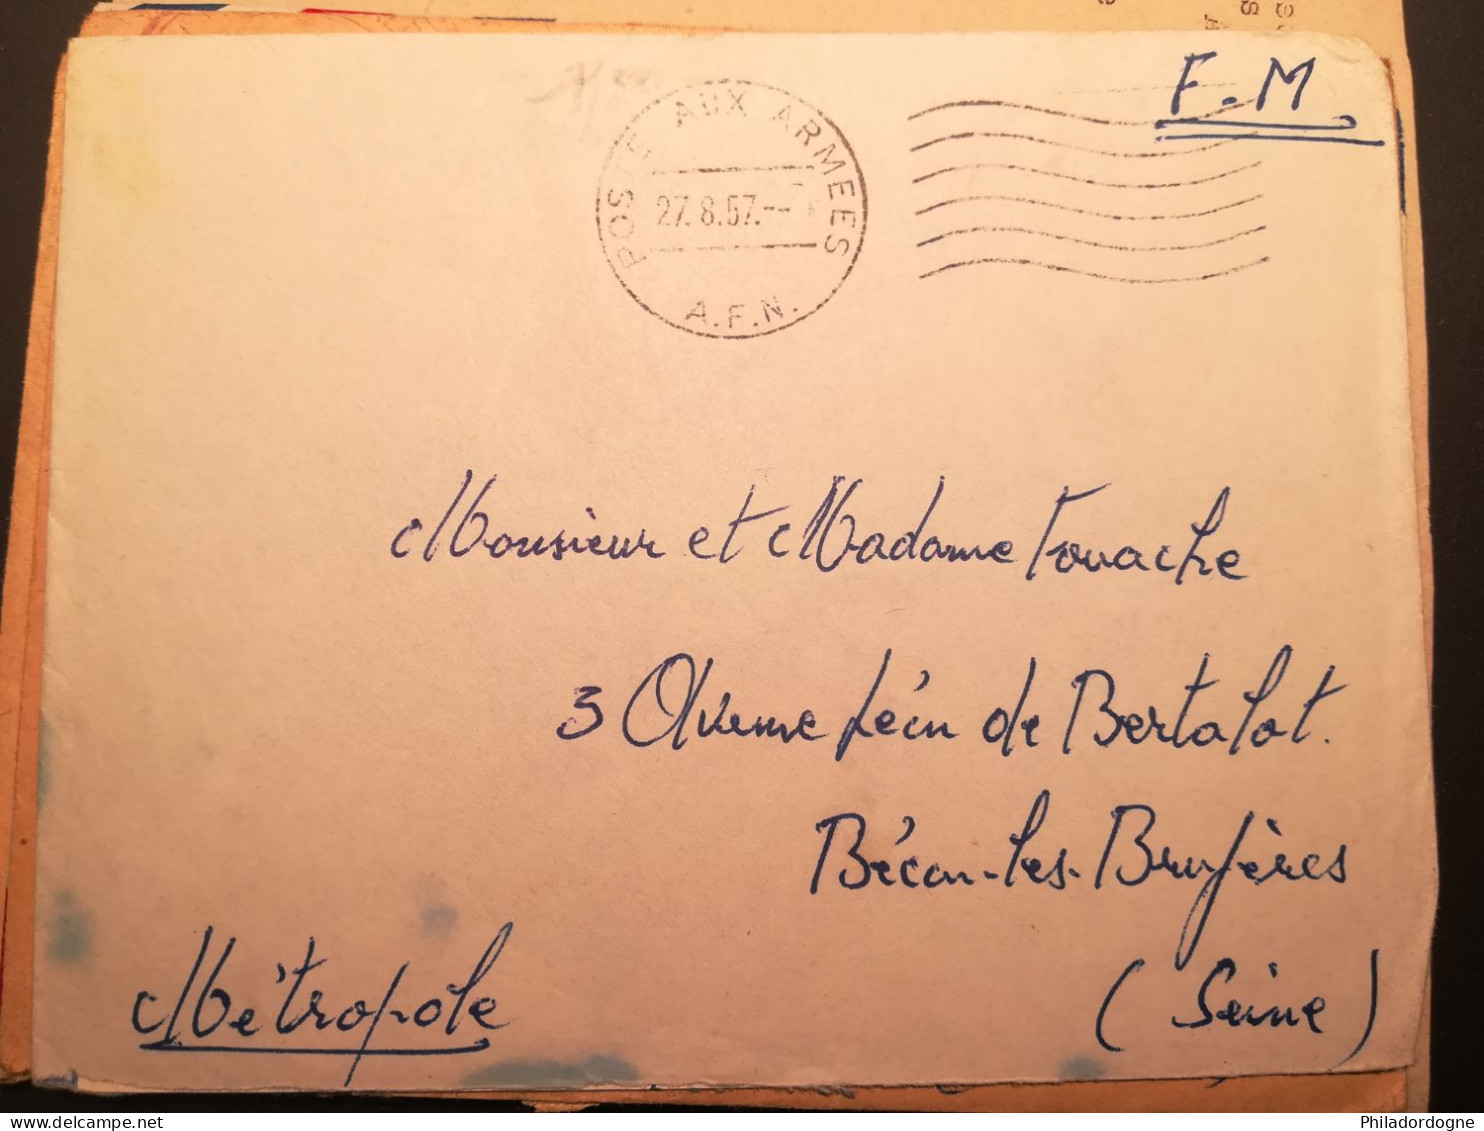 F.M.
POSTE AUX ARMEES
27.8.57.--
A.F.N.
Monsieur et Madame Touache
3 Avenue Léon de Bertalot.
Bécon-les-Bruyères
(Seine)
Métropole
Philadordogne